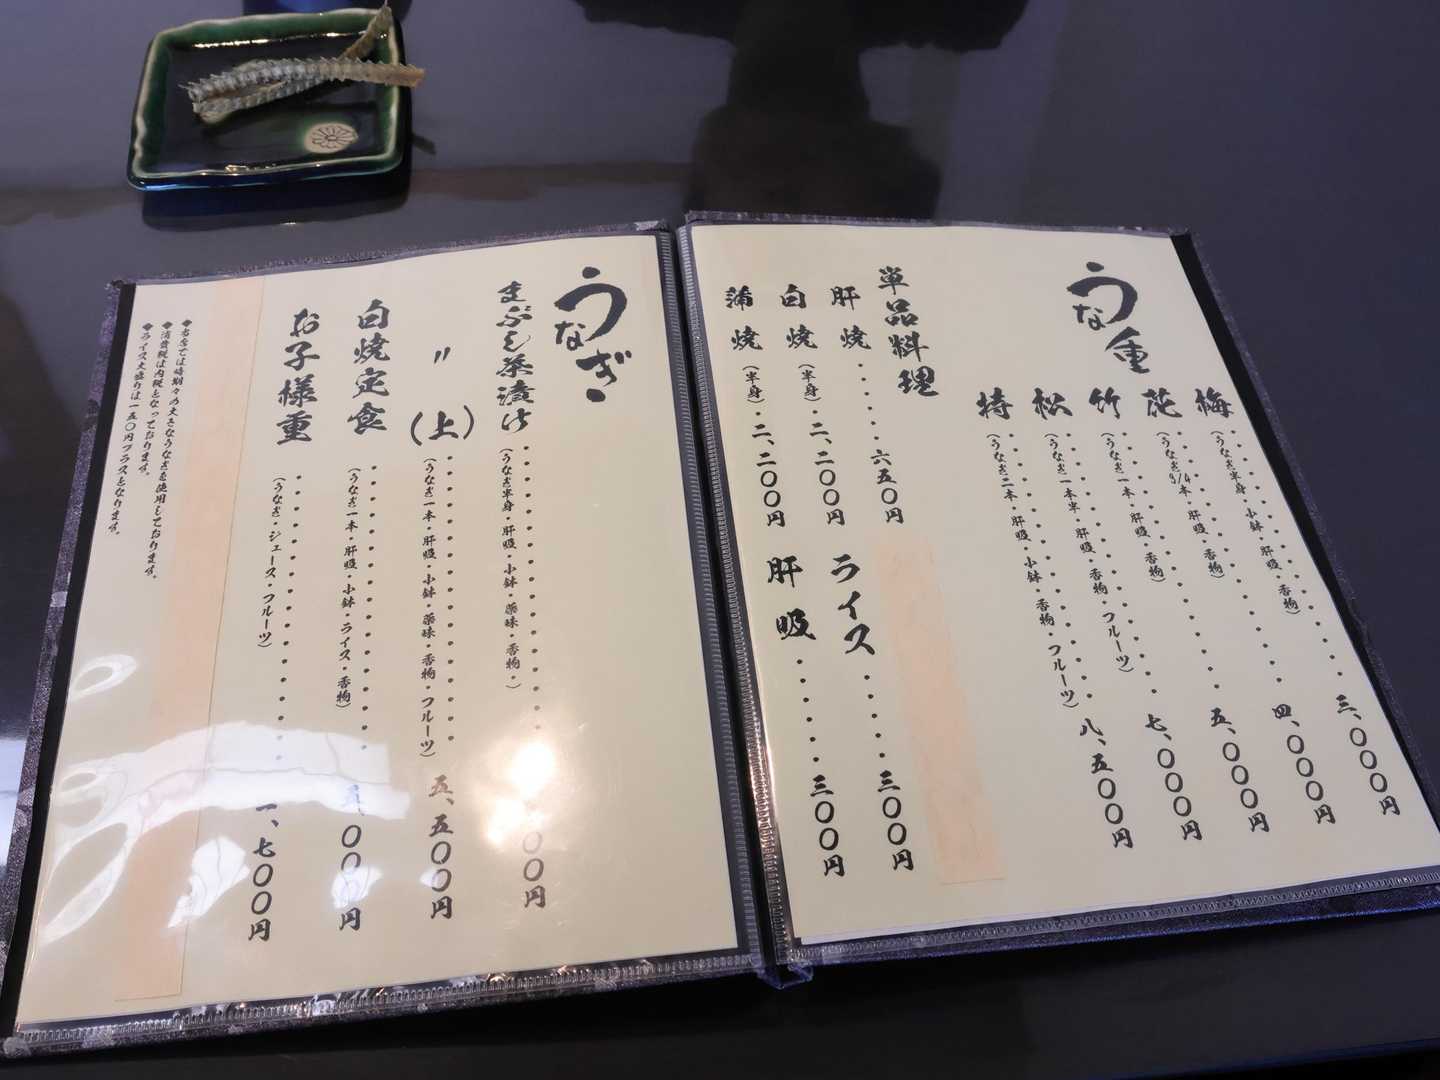 うな重
梅・・・・・・・・・・・・・・・三、〇〇〇円
(うなぎ半身・小鉢・肝吸・香物)
花・・・・・・・・・・・・・・・四、〇〇〇円
(うなぎ3/4本・肝吸・香物)
竹・・・・・・・・・・・・・・・五、〇〇〇円
(うなぎ一本・肝吸・香物)
松・・・・・・・・・・・・・・・七、〇〇〇円
(うなぎ一本半・肝吸・香物・フルーツ)
特・・・・・・・・・・・・・・・八、五〇〇円
(うなぎ二本・肝吸・小鉢・香物・フルーツ)
単品料理
肝焼・・・・・・六五〇円
白焼(半身)・二、二〇〇円
蒲焼(半身)・二、二〇〇円
ライス・・・・・三〇〇円
肝吸・・・・・・三〇〇円
うなぎ
まぶし茶漬け・・・・・・・・・・・・〇〇円
(うなぎ半身・肝吸・小鉢・薬味・香物・)
〃(上)・・・・・・・・・・・・五、五〇〇円
(うなぎ一本・肝吸・小鉢・薬味・香物・フルーツ)
白焼定食・・・・・・・・・・・・五、〇〇〇円
(うなぎ一本・肝吸・小鉢・ライス・香物)
お子様重・・・・・・・・・・・・一、七〇〇円
(うなぎ・ジュース・フルーツ)
◆当店では時期々の大きなうなぎを使用しております。
◆消費税は内税となっております。
◆ライス大盛りは一五〇円プラスとなります。